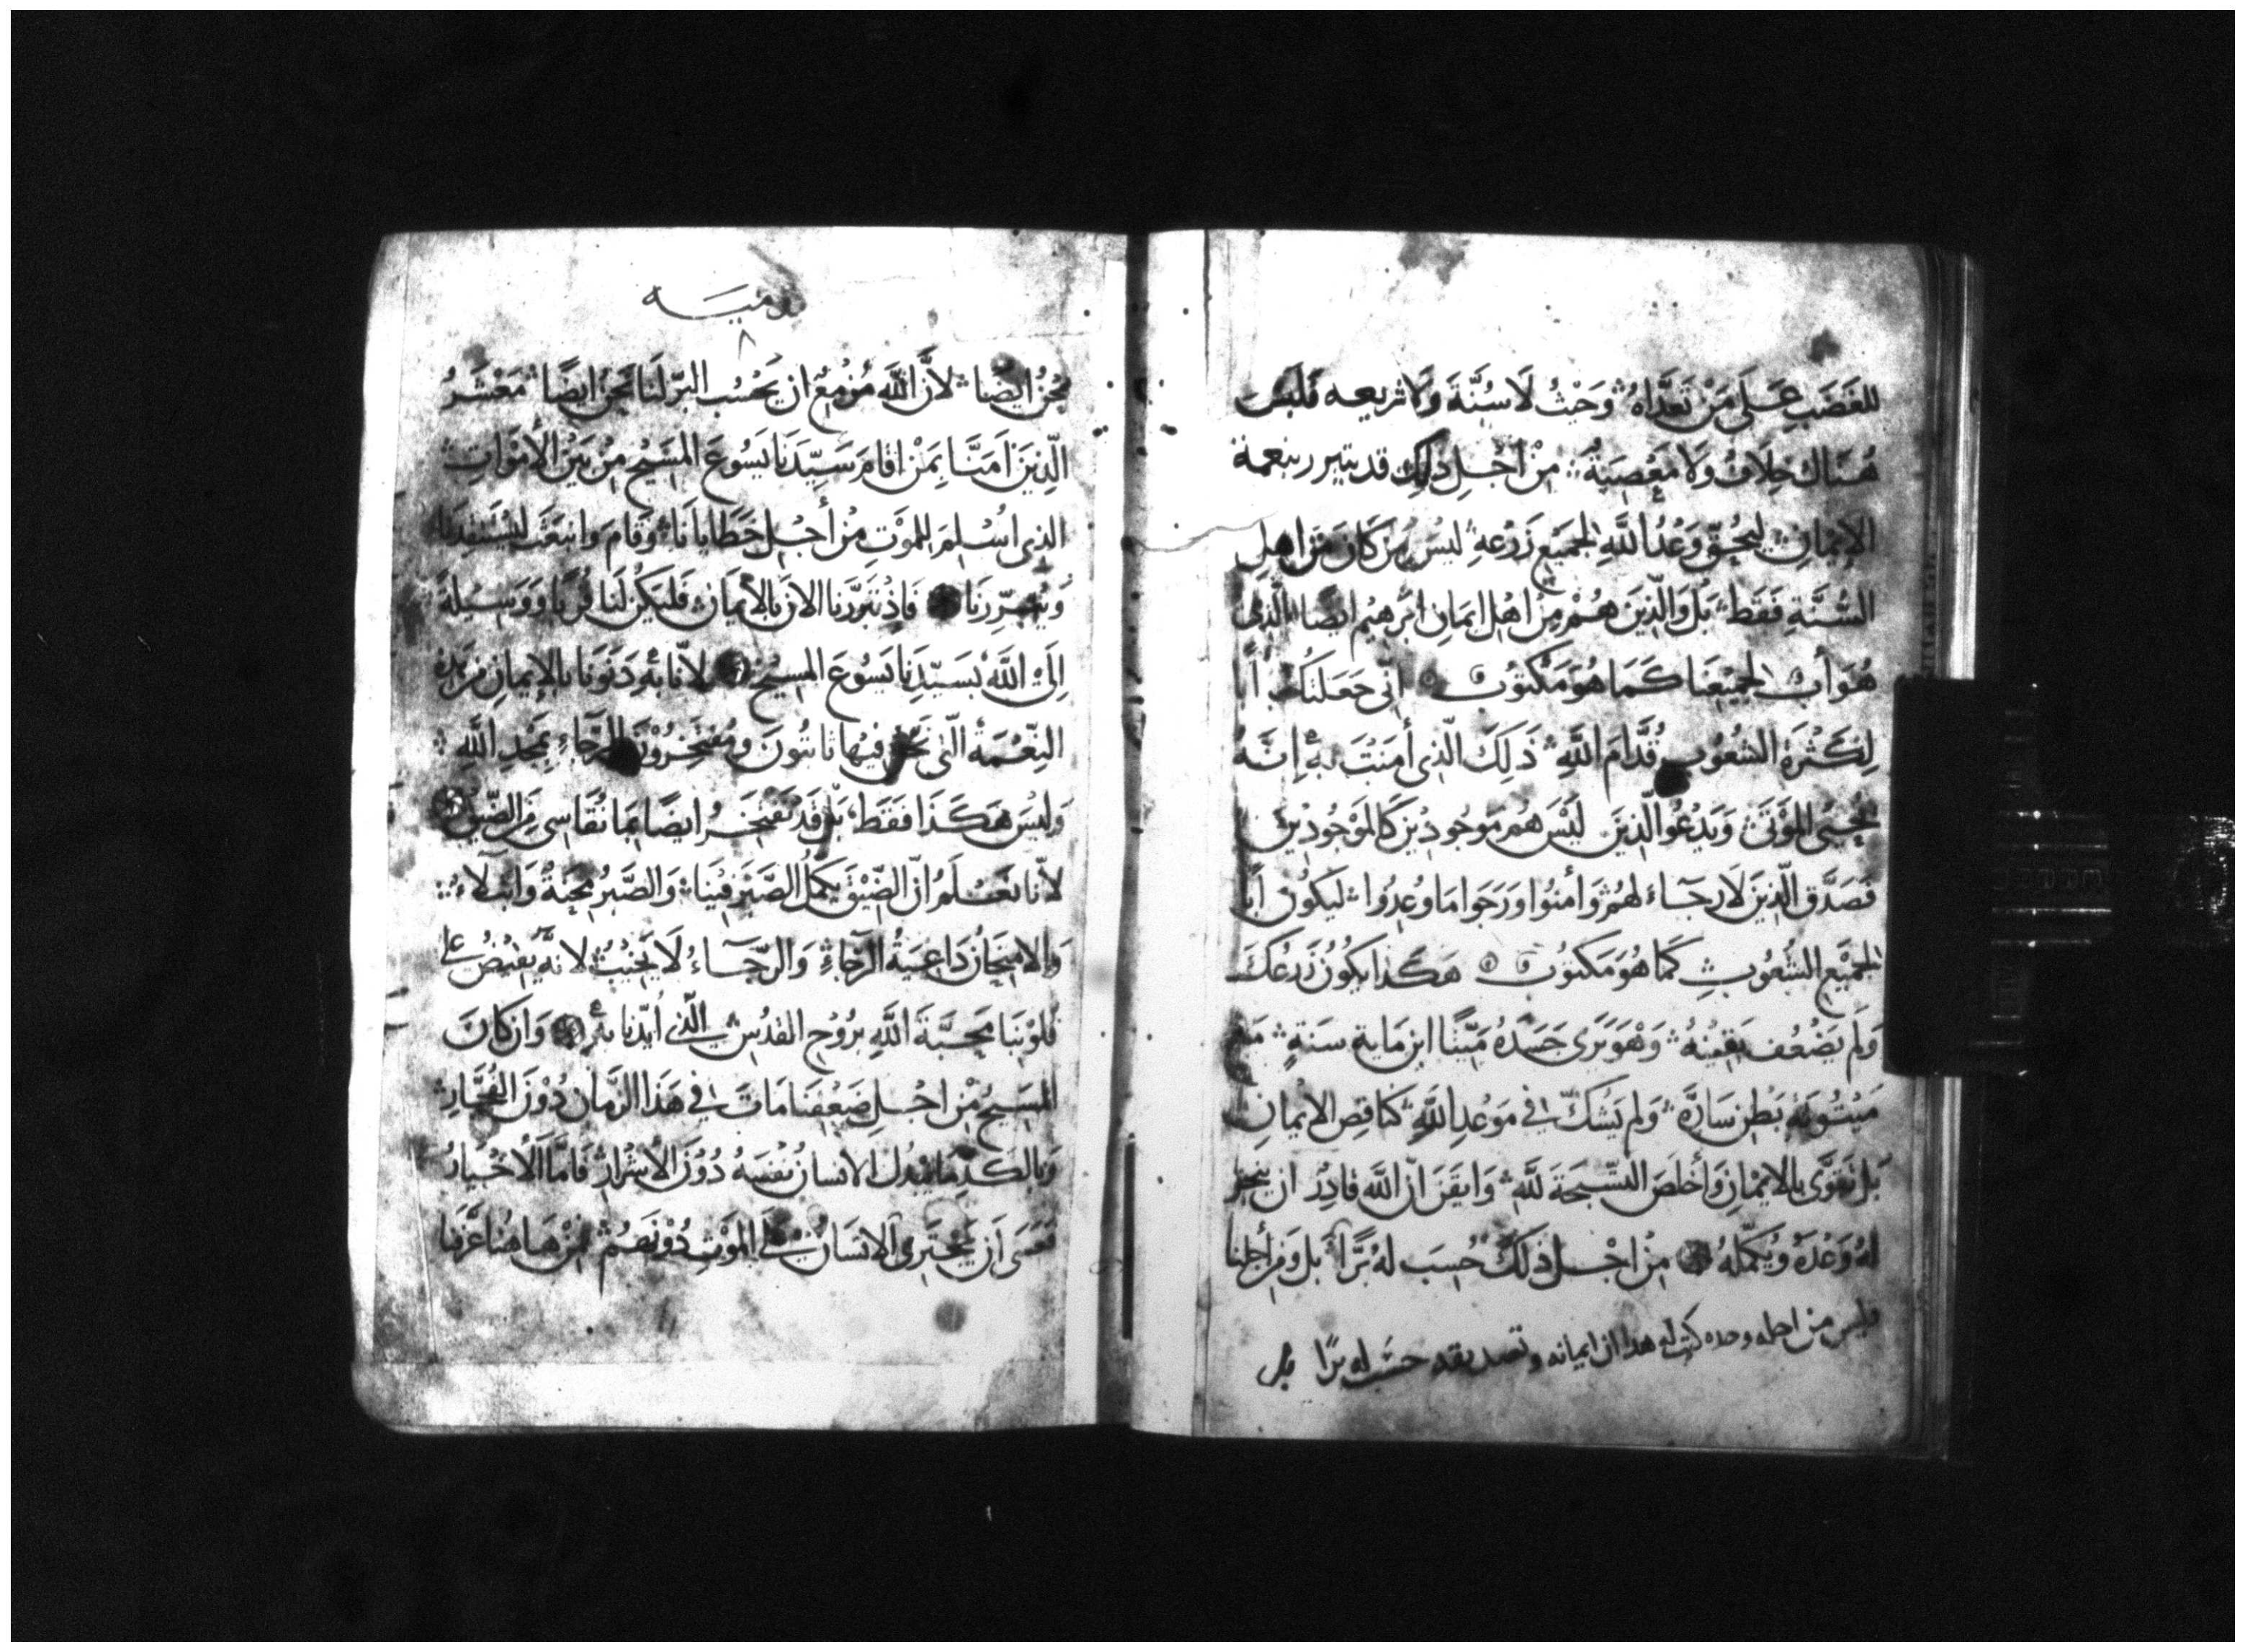 للغَضَبِ عَلَى مَنْ تَعَدَّاهُ وَحَيْثُ لَا سُنَّةَ وَلَا شريعه فَلَيْسَ
هُنَاكَ خِلَافٌ وَلَا مَعْصِيَةٌ مِنْ أَجْلِ ذَلِكَ قد يتبرر بنعمة
الإِيْمَانِ لِيَحُقّ وَعْدُ اللَّهِ لجَمِيْعِ زَرْعِهِ لَيْسَ مَنْ كَانَ مِنْ اهلِ
السُّنَّةِ فَقَط بَلْ وَالَّذِينَ هُمْ مِنْ اهْلِ ايمَانِ ابْرهِيْم ايضًا الَّذِي
هُوَ أَبٌ لجَمِيْعِنَا كَمَا هُوَ مَكْتوُب انّي جَعَلتُكَ أَبًا
لِكَثْرَةِ الشعُوُبِ قُدَّامَ اللَّهِ ذَلِكَ الّذِي أَمَنْتَ بِهِ إِنَّهُ
يُحْيِي المَوْتَى وَيَدْعُو الَّذِينَ لَيْسَ هُم مَوجُودِيْن كَالمَوْجُودِيْنَ
فَصَدَّق الَّذِينَ لَا رجَآءَ لهُمْ وَأمَنُوا وَرَجَوا مَا وُعِدُوا لِيَكُوُن أَبًا
لجَمِيْعِ الشُّعُوُبِ كَمَا هُوَ مَكتوُب هَكَذا يكوُنُ زَرعُكَ
وَلَم يَضْعُف يَقِيْنُهُ وَهْوَ يَرَى جَسَدَهُ مَيّتًا ابن مَاية سَنَةٍ مَعَ
مَيْتُوتَةِ بَطْنِ سَارَّه وَلم يَشُكّ فِي مَوْعُدِ اللَّهِ كنَاقِصِ الايْمانِ
بَل تَقَوَّى بالايْمَانِ وَأخلَصَ التسْبِحَةَ للَّهِ وَايقَنَ انّ اللَّه قَادِرٌ ان ينجِز
لهُ وَعْدَهُ وَيُكمّلهُ مِنْ اجْلِ ذلكَ حُسِبَ لهُ بْرًّا بَل وَمِنْ أجلِنا
وليس من اجله وحده كتب هدا ان ايمانه وتصديقه حسب له برًا بل
روميه
٨
نحْنُ ايْضًا لأنَّ اللَّه مُزْمِعٌ ان يَحْسُب البّر لَنا نَحْنُ ايضًا مَعْشَرُ
الّذِينَ آمَنَّا بِمَنْ اقامَ سَيِّدَنَا يَسُوعَ المسَيْح مِنْ بَيْنِ الأَمْوَاتِ
الذِي اُسْلِمَ للمَوْتِ مِنْ أَجْلِ خَطَايَانَا وَقَامَ وَانبَعَثَ
وَيُبَرِّرنَا فَاِذْ تَبَرَّرنا الانَ بالأيْمَان فَليَكُنْ لَنَا قُربًا وَوَسِيْلةً
اِلَى اللَّه بسَيّدِنَا يَسُوعَ المسِيْح لأنّا بهِ دَنَوْنَا بالإيمانِ مِن هَذِهِ
النِّعْمَةِ الّتي نَحْنُ فيْهَا ثَابتُونَ وَمُفتَخِرُوْنَ بالرَّجَاءِ بمَجْدِ اللَّهِ
وَليْسَ هَكَذَا فَقَط بَلْ قَدْ نَفتخِرُ ايضًا بِمَا نُقَاسِي مِنَ الضِّيْقِ
لأنّا نَعْلَمُ انّ الضِّيْقَ يُكمّلُ الصَّبْرَ فِيْنَا وَالصَّبْرُ مِحْنَةٌ وَابتلَاءٌ
وَالامتِحَانُ دَاعِيَةُ الرّجَاءِ وَالرّجَآءُ لَا يُخِيْبُ لانَّهُ يفِيْضُ على
قُلوْبِنَا مَحَبَّةَ اللَّهِ بُروُحِ القدُسِ الّذي اُيّدنَا بهِ وَانْ كانَ
المسَيْحُ مِنْ اجْلِ ضَعْفِنَا مَاتَ فِي هَذَا الزمَان دُوْنَ الفُجَّارِ
وَبالكَدّ مَا يَبْذُل الانسَانُ نَفْسَهُ دُوْنَ الأشْرَارِ فَامَّا الأَخْيَارُ
فَعَسَى أَن يَجْتَرِي الانسَانُ عَلَى المَوْتِ دُوْنَهُمْ مِنْ هَا هُنا عَرَّفنا